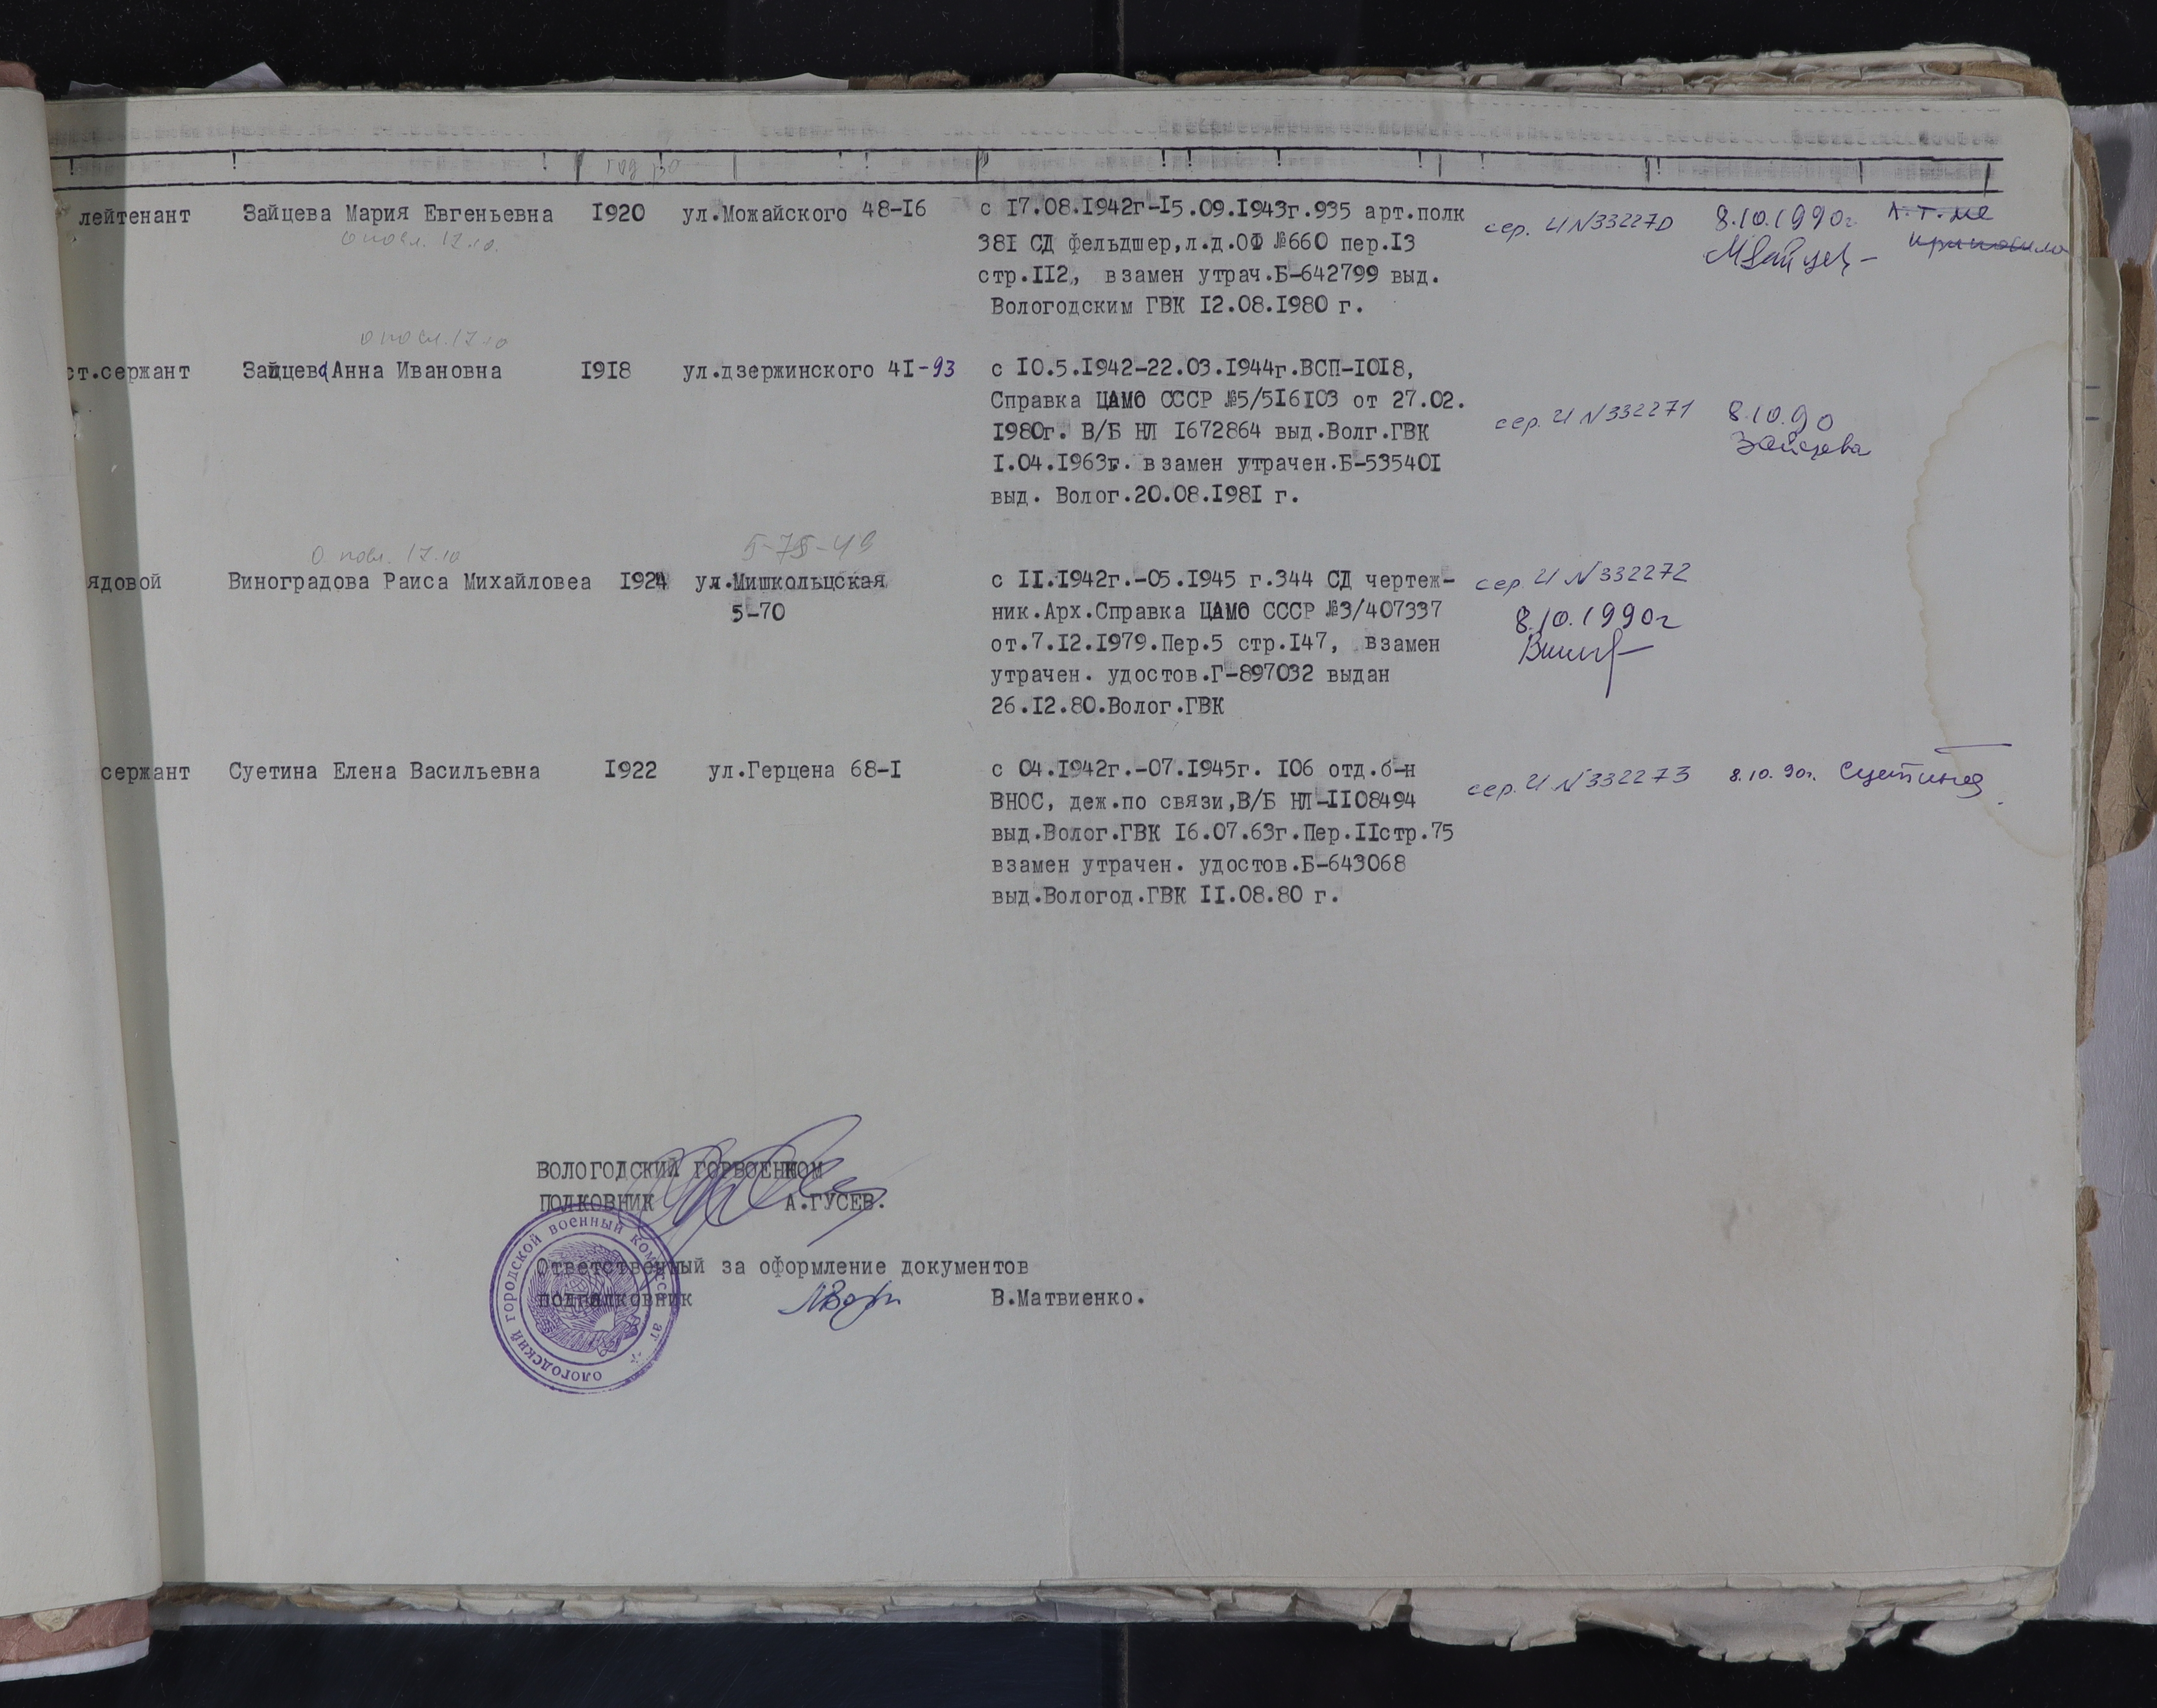 год ро
лейтенант Зайцева Мария Евгеньевна 1920 ул.Можайского 48-16 с 17.08.1942г-15.09.1943г.935 арт.полк сер. И №332270 8.10.1990г.
381 СД фельдшер,л.д.ОФ №660 пер.13
стр.112, взамен утрач.Б-642799 выд.
Вологодским ГВК 12.08.1980 г.
ст.сержант Зайцева Анна Ивановна 1918 ул.дзержинского 41-93 с 10.5.1942-22.03.1944г.ВСП-1018,
Справка ЦАМО СССР №5/516103 от 27.02. сер. И №332271 8.10.90
1980г. В/Б НЛ 1672864 выд.Волг.ГВК Зайцева
1.04.1963г. взамен утрачен.Б-535401
выд. Волог.20.08.1981 г.
5-75-49
ядовой Виноградова Раиса Михайловеа 1924 ул.Мишкольцская с 11.1942г.-05.1945 г.344 СД чертеж- сер И №332272
5-70 ник.Арх.Справка ЦАМО СССР №3/407337 8.10.1990г
от.7.12.1979.Пер.5 стр.147, взамен
утрачен. удостов.Г-897032 выдан
26.12.80.Волог.ГВК
сержант Суетина Елена Васильевна 1922 ул.Герцена 68-1 с 04.1942г.-07.1945г. 106 отд.б-н сер. И №332273 8.10.90г. Суетина
ВНОС, деж.по связи,В/Б НЛ-1108494
выд.Волог.ГВК 16.07.63г.Пер.11стр.75
взамен утрачен. удостов.Б-643068
выд.Вологод.ГВК 11.08.80 г.
ВОЛОГОДСКИЙ ГОРВОЕНКОМ
ПОЛКОВНИК А.ГУСЕВ.
Ответственный за оформление документов
подполковник В.Матвиенко.
ологодский городской военный комиссариат